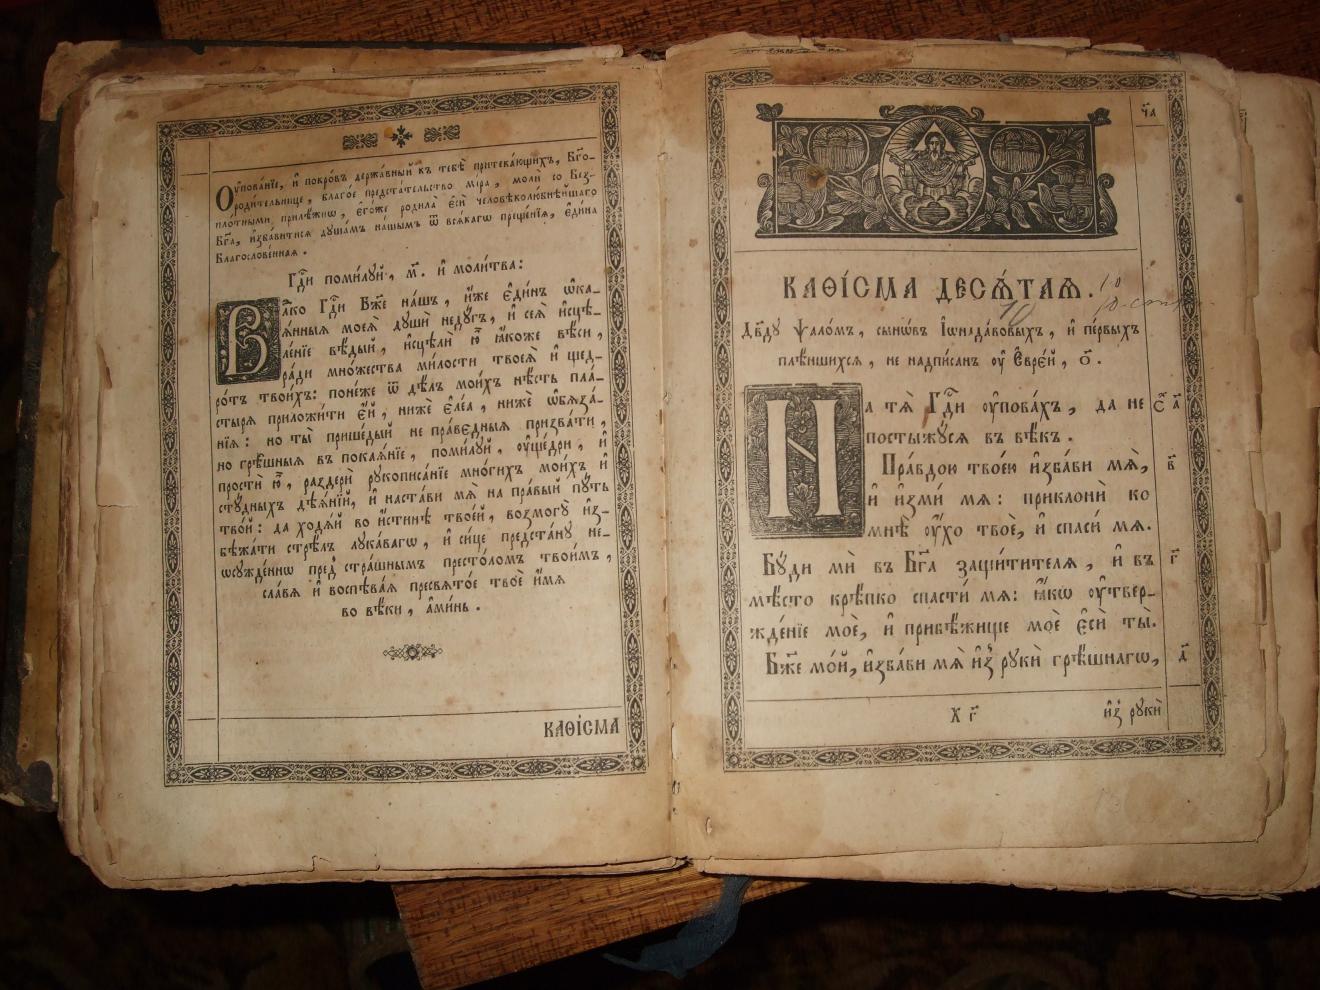 Оу҆пова́нїе, и҆ покро́въ держа́вный къ тебѣ̀ притека́ющихъ, Бг҃о-
роди́тельнице, благо́е предста́тельство мі́ра, молѝ со Без-
пло́тными прилѣ́жнѡ, є҆го́же родила̀ є҆сѝ человѣколю́бнѣйшаго
Бг҃а, и҆зба́витися душа́мъ на́шымъ ѿ всѧ́кагѡ преще́нїѧ, є҆ди́на
Благослове́ннаѧ.
Гдⷭ҇и поми́луй, м҃. и҆ моли́тва:
Влⷣко Гдⷭ҇и Бж҃е на́шъ, и҆́же є҆ди́нъ ѡ҆ка-
ѧ́нныѧ моеѧ̀ душѝ неду́гъ, и҆ сеѧ̀ и҆сцѣ-
ле́нїе вѣ́дый, и҆сцѣлѝ ю҆̀ ꙗ҆́коже вѣ́си,
ра́ди мно́жества ми́лости твоеѧ̀ и҆ щед-
ро́тъ твои́хъ: поне́же ѿ дѣ́лъ мои́хъ нѣ́сть пла́-
стырѧ приложи́ти є҆́й, нижѐ є҆ле́а, нижѐ ѡ҆бѧза́-
нїѧ: но ты̀ прише́дый не пра́вєдныѧ призва́ти,
но грѣ̑шныѧ въ покаѧ́нїе, поми́луй, оу҆ще́дри, и҆
простѝ ю҆̀, раздерѝ рукописа́нїе мно́гихъ мои́хъ и҆
сту́дныхъ дѣѧ́нїй, и҆ наста́ви мѧ̀ на пра́вый пу́ть
тво́й: да ходѧ́й во и҆́стинѣ твое́й, возмогу̀ и҆з-
бѣжа́ти стрѣ́лъ лука́вагѡ, и҆ си́це предста́ну не-
ѡсужде́ннѡ пред̾ стра́шнымъ престо́ломъ твои́мъ,
сла́вѧ и҆ воспѣва́ѧ пресвѧто́е твоѐ и҆́мѧ
во вѣ́ки, а҆ми́нь.
КАѲІ́СМА
ч҃а
КАѲІ́СМА ДЕСѦ́ТАѦ.
10
Дв҃ду ѱало́мъ, сынѡ́въ І҆ѡнада́вовыхъ, и҆ пе́рвыхъ
плѣ́ншихсѧ, не надпи́санъ оу҆ Є҆вре́й, о҃.
На тѧ̀ Гдⷭ҇и оу҆пова́хъ, да не
постыжу́сѧ въ вѣ́къ.
Пра́вдою твое́ю и҆зба́ви мѧ̀,
и҆ и҆змѝ мѧ: приклонѝ ко
мнѣ̀ оу҆́хо твоѐ, и҆ спасѝ мѧ.
Бу́ди мѝ въ Бг҃а защи́тителѧ, и҆ въ
мѣ́сто крѣ́пко спасти́ мѧ: ꙗ҆́кѡ оу҆твер-
жде́нїе моѐ, и҆ прибѣ́жище моѐ є҆сѝ ты̀.
Бж҃е мо́й, и҆зба́ви мѧ̀ и҆з̾ рукѝ грѣ́шнагѡ,
Сл҃а
в҃
г҃
д҃
Х г҃
и҆з̾ рукѝ